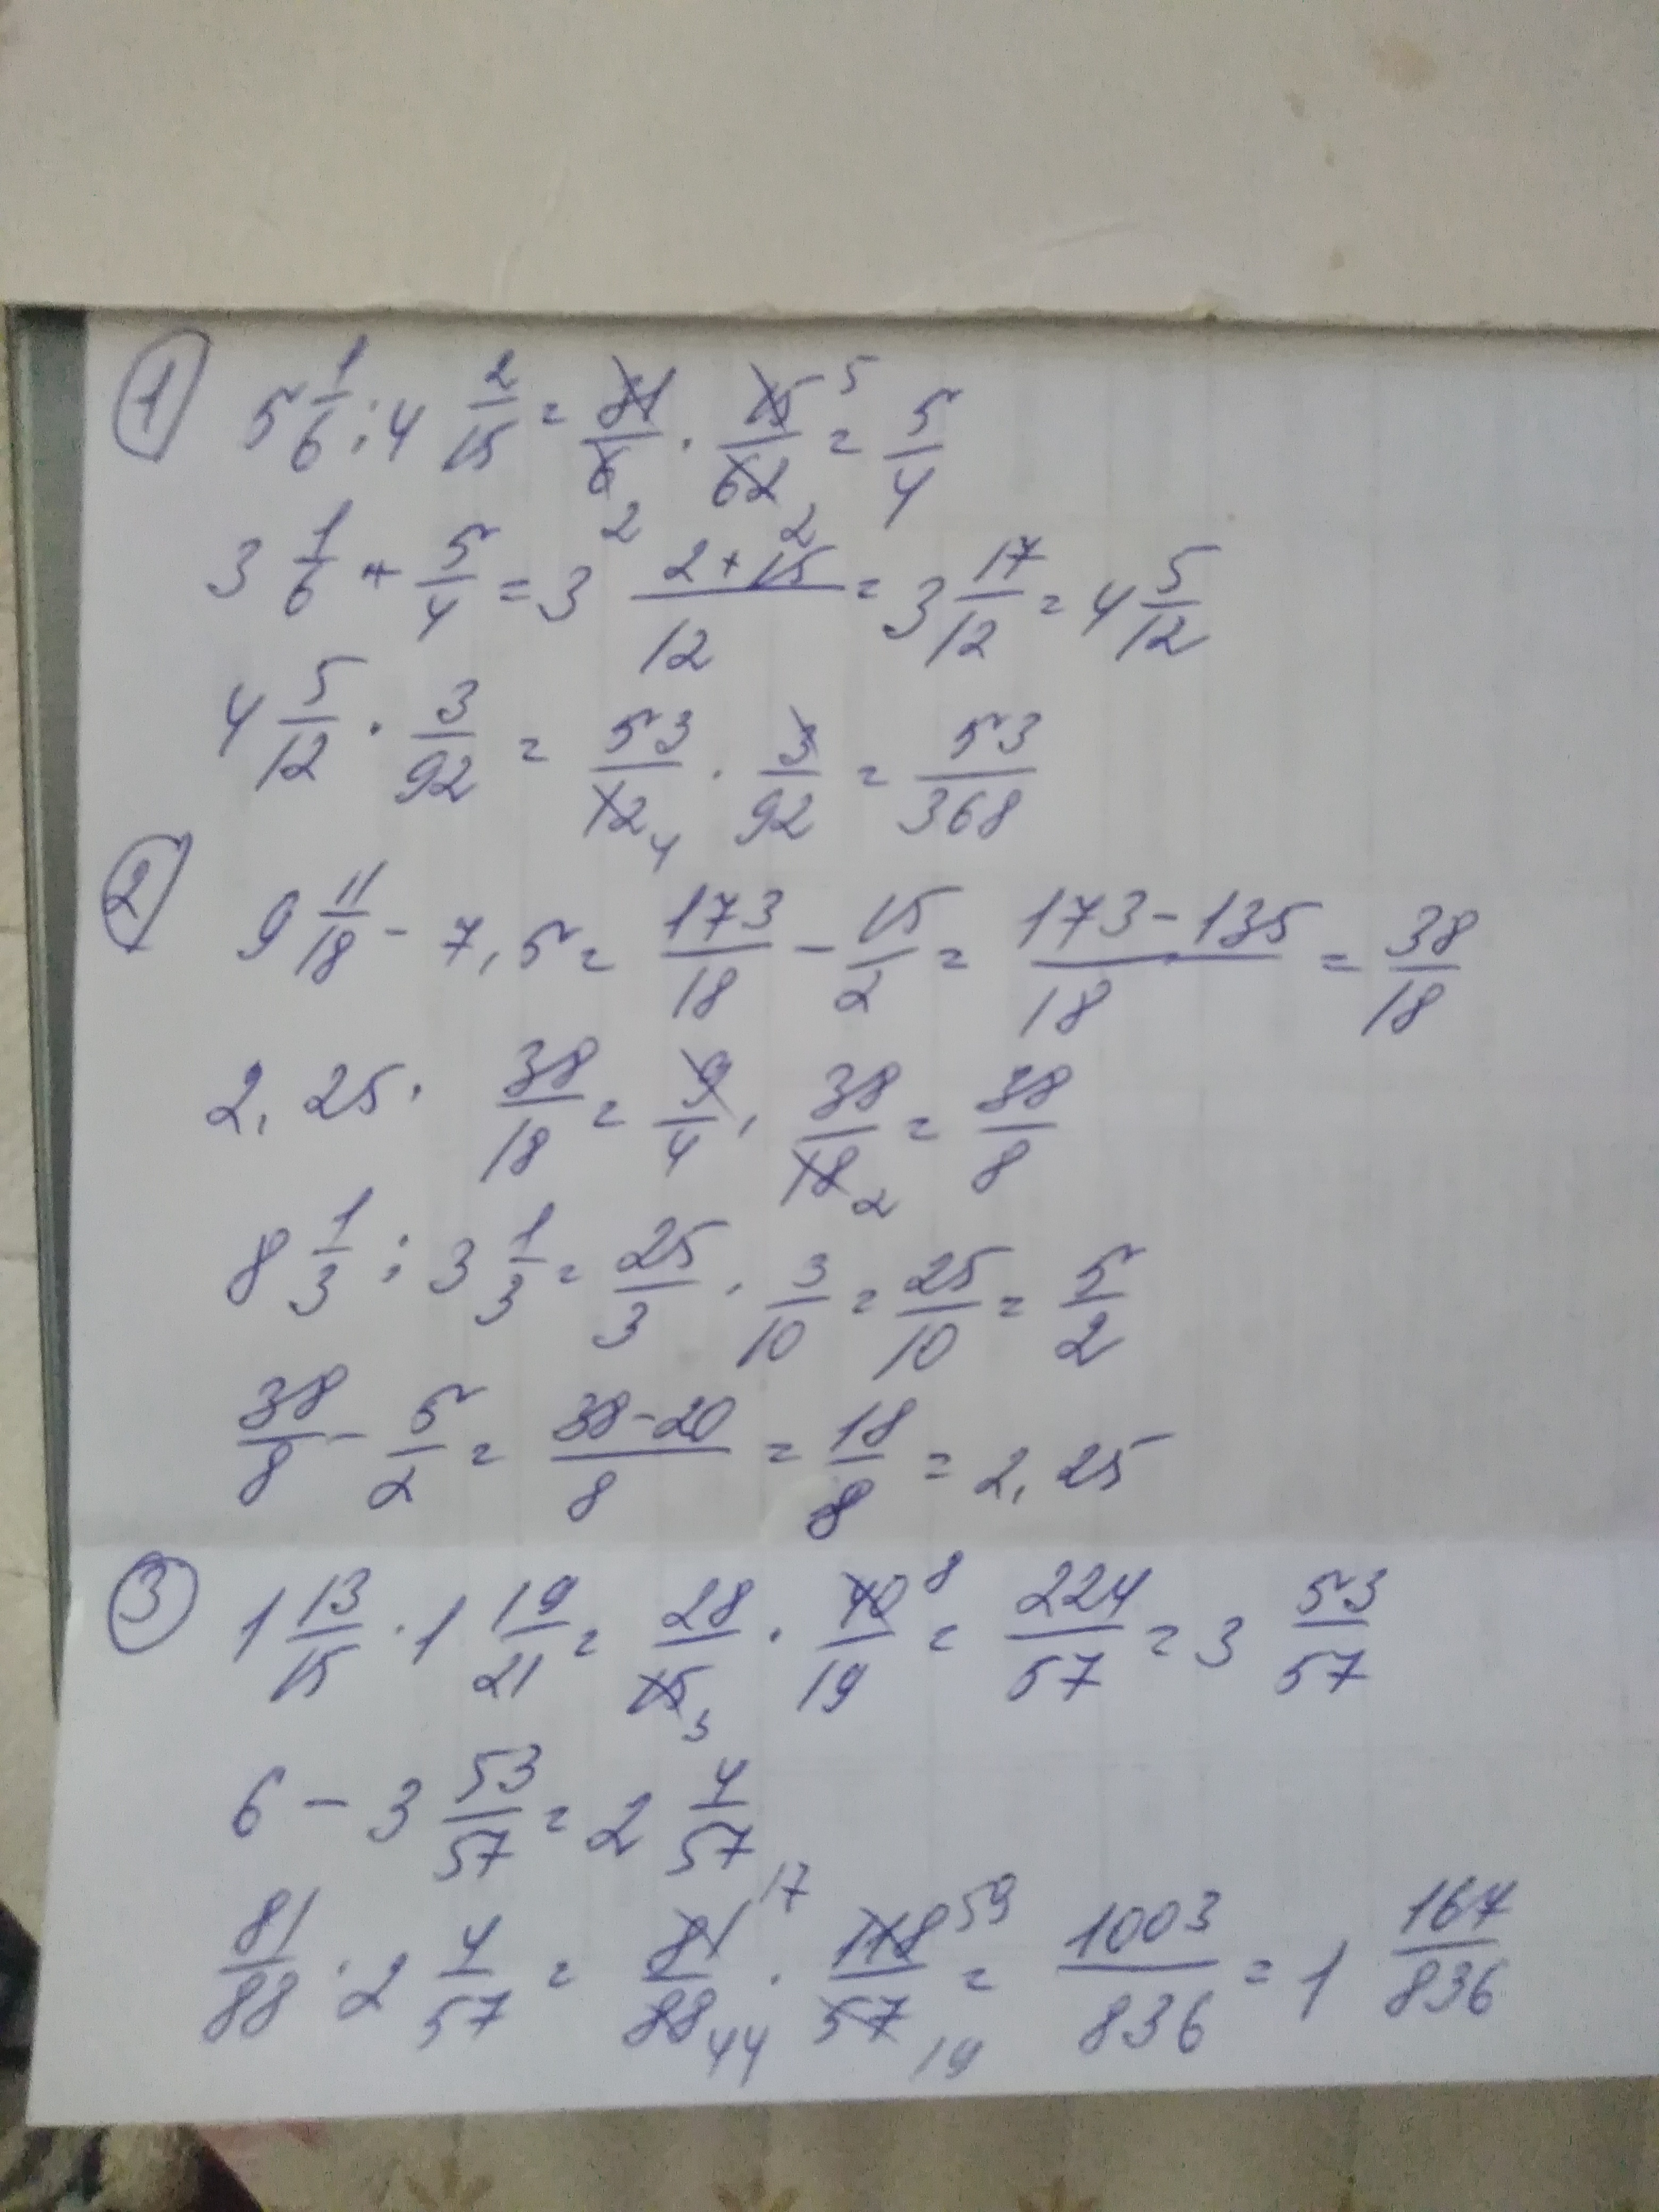 ① 5 1/6 : 4 2/15 = 31/6 · 15/62 = 5/4
3 1/6 + 5/4 = 3 (2+15)/12 = 3 17/12 = 4 5/12
4 5/12 · 3/92 = 53/12 · 3/92 = 53/368
② 9 11/18 - 7,5 = 173/18 - 15/2 = (173-135)/18 = 38/18
2,25 · 38/18 = 9/4 · 38/18 = 38/8
8 1/3 : 3 1/3 = 25/3 · 3/10 = 25/10 = 5/2
38/8 - 5/2 = (38-20)/8 = 18/8 = 2,25
③ 1 13/15 · 1 19/21 = 28/15 · 40/19 = 224/57 = 3 53/57
6 - 3 53/57 = 2 4/57
81/88 · 2 4/57 = 81/88 · 118/57 = 1003/836 = 1 167/836